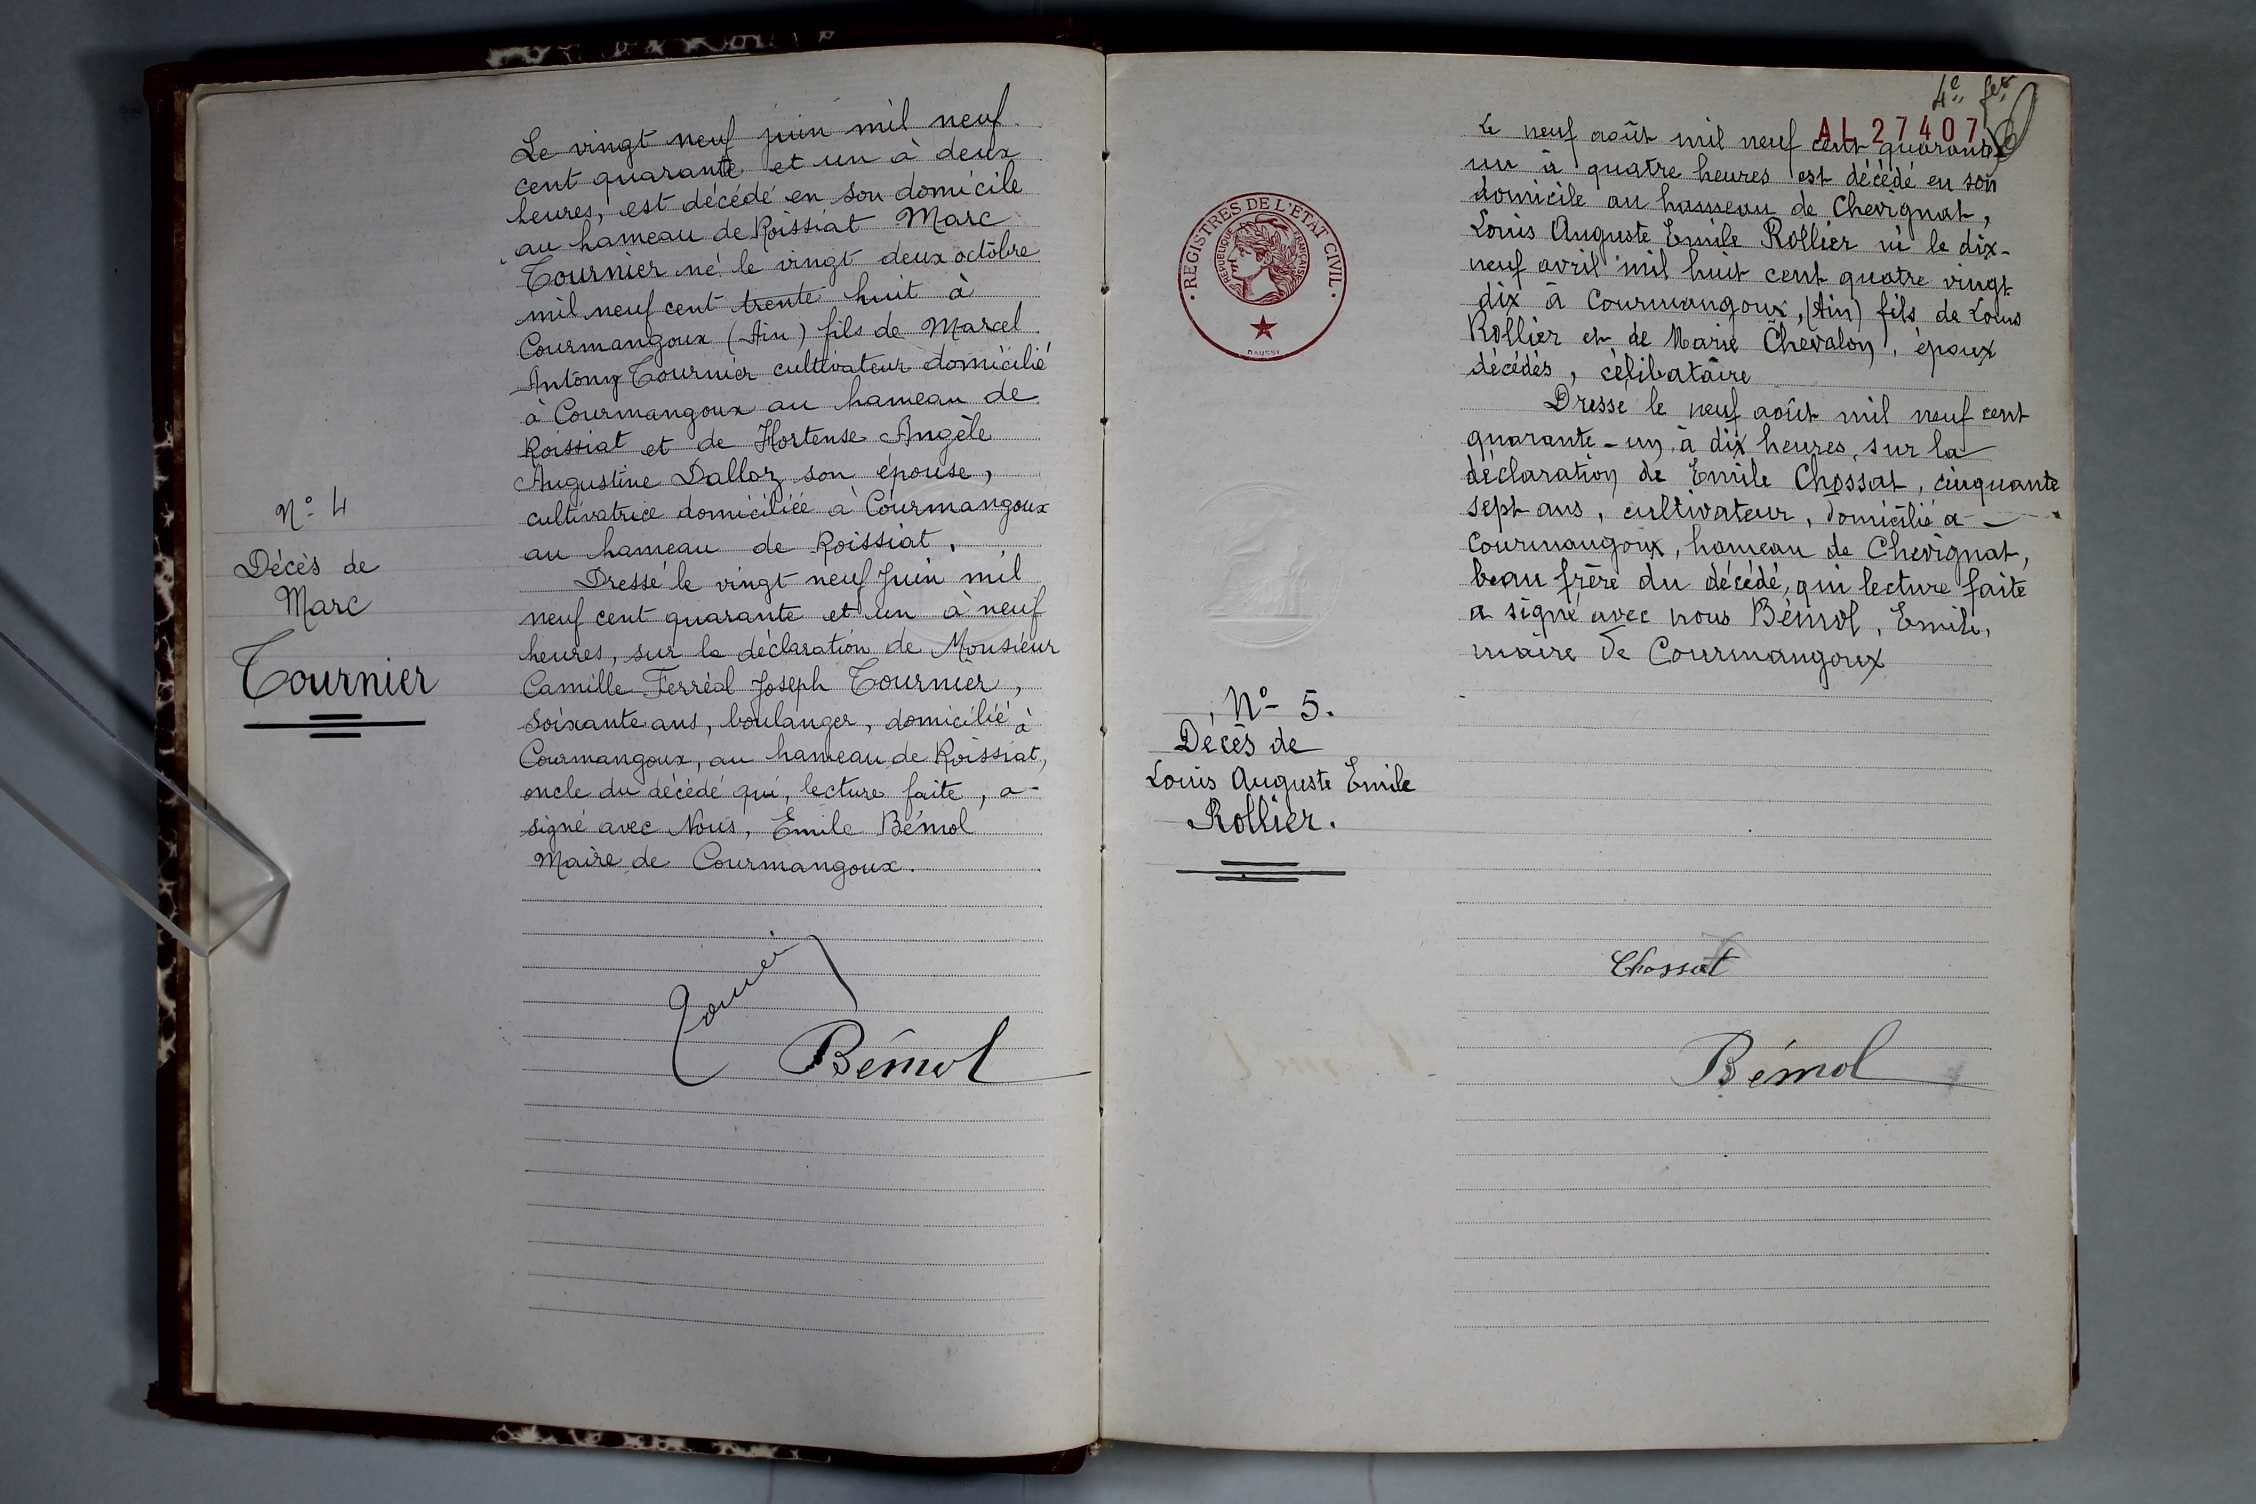 N° 4
Décès de
Marc
Tournier
Le vingt neuf juin mil neuf
cent quarante et un à deux
heures, est décédé en son domicile
au hameau de Roissiat Marc
Tournier né le vingt deux octobre
mil neuf cent trente huit à
Courmangoux (Ain) fils de Marcel
Antony Tournier cultivateur domicilié
à Courmangoux au hameau de
Roissiat et de Hortense Angèle
Augustine Dalloz son épouse,
cultivatrice domiciliée à Courmangoux
au hameau de Roissiat.
Dressé le vingt neuf Juin mil
neuf cent quarante et un à neuf
heures, sur la déclaration de Monsieur
Camille Ferréol Joseph Tournier,
soixante ans, boulanger, domicilié à
Courmangoux, au hameau de Roissiat,
oncle du décédé qui, lecture faite, a
signé avec Nous, Emile Bémol
Maire de Courmangoux.
Bémol
4e
AL 27407
REGISTRES DE L'ETAT CIVIL
REPUBLIQUE FRANÇAISE
N° 5.
Décès de
Louis Auguste Emile
Rollier.
Le neuf août mil neuf cent quarante
un à quatre heures est décédé en son
domicile au hameau de Chevignat,
Louis Auguste Emile Rollier né le dix-
neuf avril mil huit cent quatre vingt
dix à Courmangoux, (Ain) fils de Louis
Rollier et de Marie Chevalon, époux
décédés, célibataire
Dressé le neuf août mil neuf cent
quarante-un, à dix heures, sur la
déclaration de Emile Chossat, cinquante
sept ans, cultivateur, domicilié à
Courmangoux, hameau de Chevignat,
beau frère du décédé, qui lecture faite
a signé avec nous Bémol, Emile,
maire de Courmangoux
Chossat
Bémol